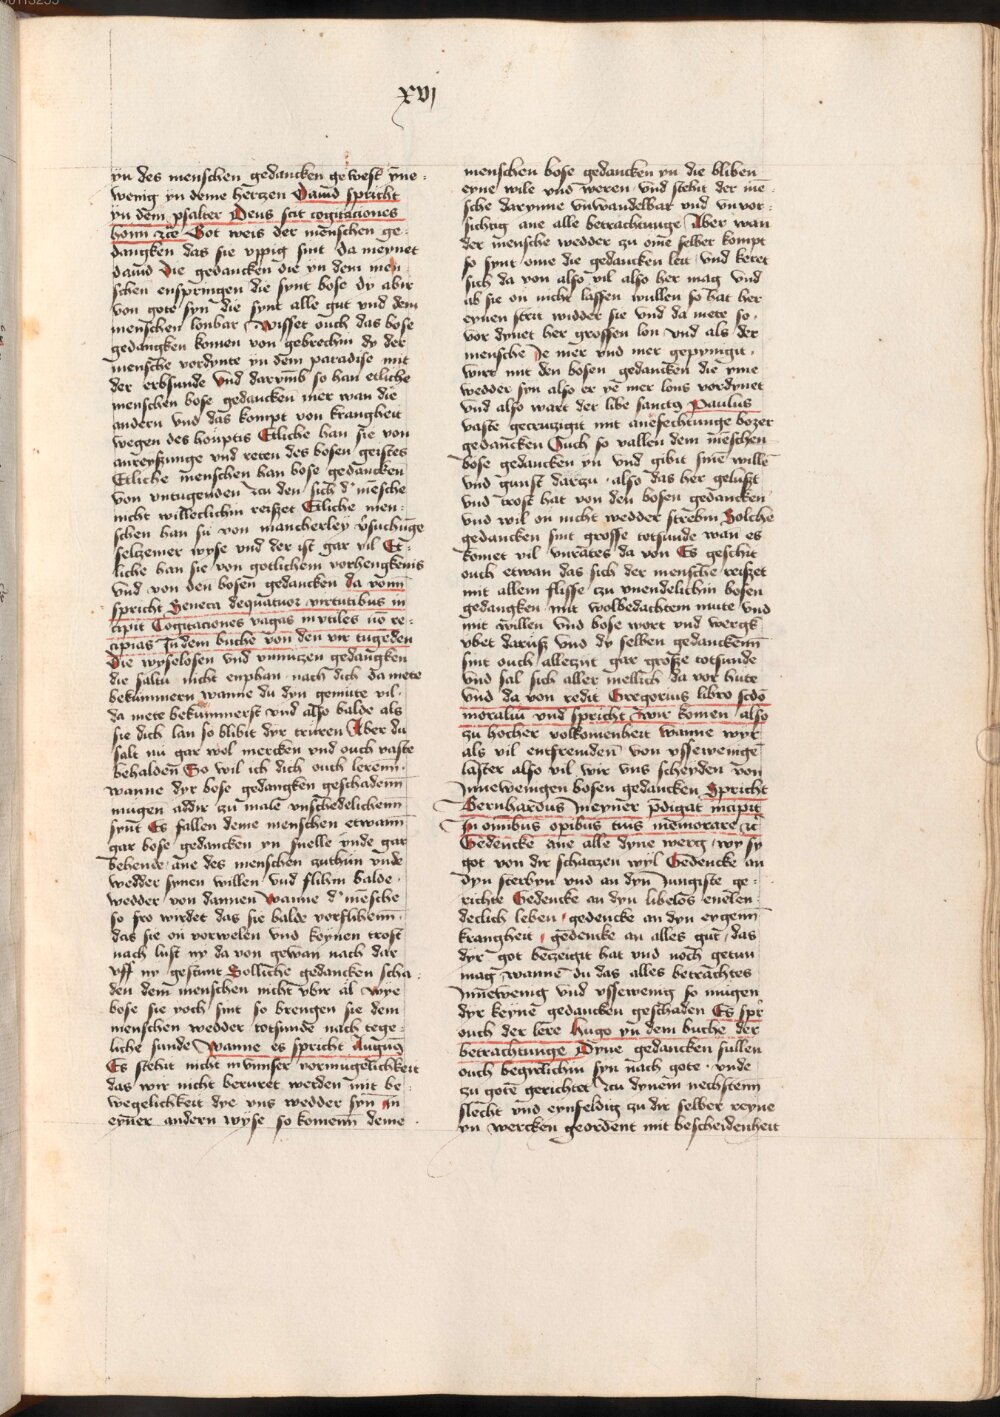 xvj
yn des menschen gedancken gewest yne-
wenig yn deme hertzen Dauid spricht
yn dem psalter Deus scit cogitaciones
homi etc Got weis der menschen ge-
dangken das sie vppig sint da meynet
dauid Die gedancken die yn dem men
schen enspringen die synt bose dy abir
von gote syn die synt alle gut vnd dem
menschen lonbar Wisset ouch das bose
gedangken komen von gebrechin dy der
mensche vordynte yn dem paradise mit
der erbsunde Vnd darvmb so han etliche
menschen bose gedancken mer wan die
andern vnd das kompt von krangheit
wegen des houptis Etliche han sie von
anreysunge vnd reten des bosen geistes
Etliche menschen han bose gedancken
von vntugenden zcu den sich d mesche
nicht willeclichin reiszet Etliche men-
schen han sii von mancherley vsuchunge
selczemer wyse vnd der ist gar vil Et-
liche han sie von gotlichem vorhengkenis
vnd von den bosen gedancken da vonn
spricht Seneca dequatuor virtutibus in
cipit Cogitaciones vagas inutiles no re-
cipias In dem buche von den vir tugeden
Die wyselosen vnd vnnutzen gedangken
die saltu nicht enphan nach dich da mete
bekummern wanne du dyn gemute vil
da mete bekummerst vnd also balde als
sie dich lan so blibit dyr truren Aber du
salt nu gar wol mercken vnd ouch vaste
behalden So wil ich dich ouch lerenn
wanne dyr bose gedangken geschadenn
mugen adder zu male vnschedelichenn
synt Es fallen deme menschen etwann
gar bose gedancken yn snelle vnde gar
behende ane des menschen zuthun vnde
wedder synen willen vnd flihin balde
wedder von dannen Wanne d mesche
so fro wirdet das sie balde vorflihenn
das sie on vorwelen vnd keynen trost
nach lust ny da von gewan nach dar
vff ny gestunt Solliche gedancken scha
den dem menschen nicht vbir al Wye
bose sie yoch sint so brengen sie dem
menschen wedder totsunde nach tege-
liche sunde Wanne es spricht Augus
Es stehit nicht in vnnser vormugelichkeit
das wir nicht beruret werden mit be-
wegelichkeit dye vns wedder syn In
eyner andern wyse so komenn deme
menschen bose gedancken yn die bliben
eyne wile vnd weren vnd stehit der me
sche darynne vnwandelbar vnd vnvor
sichtig ane alle betrachtunge Aber wan
der mensche wedder zu ome selber kompt
so synt ome die gedancken leit vnd keret
sich da von also vil also her mag vnd
ab sie on nicht lassen wullen so hat her
eynen strit widder sie vnd da mete so
vor dynet her grossen lon vnd als der
mensche Je mer vnd mer gepynigit
wirt mit den bosen gedancken die yme
wedder syn also er ye mer lons vordynet
vnd also wart der libe sanctus Paulus
vaste gecruzigit mit anefechtunge bozer
gedancken Ouch so vallen dem meschen
bose gedancken yn vnd gibit sine wille
vnd gunst darzu also das her gelust
vnd trost hat von den bosen gedancken
vnd wil on nicht wedder strebin Solche
gedancken sint grosse totsunde wan es
komet vil vnrates da von Es geschit
ouch etwan das sich der mensche reiszet
mit allem flisse zu vnendelichin bosen
gedangken mit wolbedachtem mute vnd
mit willen vnd bose wort vnd wergk
vbet darusz vnd dy selben gedanckenn
sint ouch alleczut gar grosze totsunde
vnd sal sich aller mellich da vor hute
vnd da von redit Gregorius libro scdo
moraliu vnd spricht Wir komen also
zu hocher volkomenheit wanne wyr
als vil entfremden von vsseweinige
laster also vil wir vns scheyden von
Inneweningen bosen gedancken Spricht
Bernhardus Inneyner pdigat incipit
In omnibus opibus tuis memorare etc
Gedencke ane alle dyne werg wy sy
got von dir schatzen wyl Gedencke an
dyn sterbyn vnd an dyn Jungiste ge-
richte Gedencke an dyn libelos enelen-
declich leben gedencke an dyn eygenn
krangheit gedencke an alles gut das
dyr got bezeigit hat vnd noch getun
mag wanne du das alles betrachtes
Innewenig vnd vssewenig so mugen
dyr keyne gedancken geschaden Es spr
ouch der lere Hugo yn dem buche der
betrachtunge Dyne gedancken sullen
ouch begirlichin syn nach gote vnde
zu gote gerichtet zcu dynem nechstenn
slecht vnd eynfeldig zu dir selber reyne
yn wercken geordent mit bescheidenheit